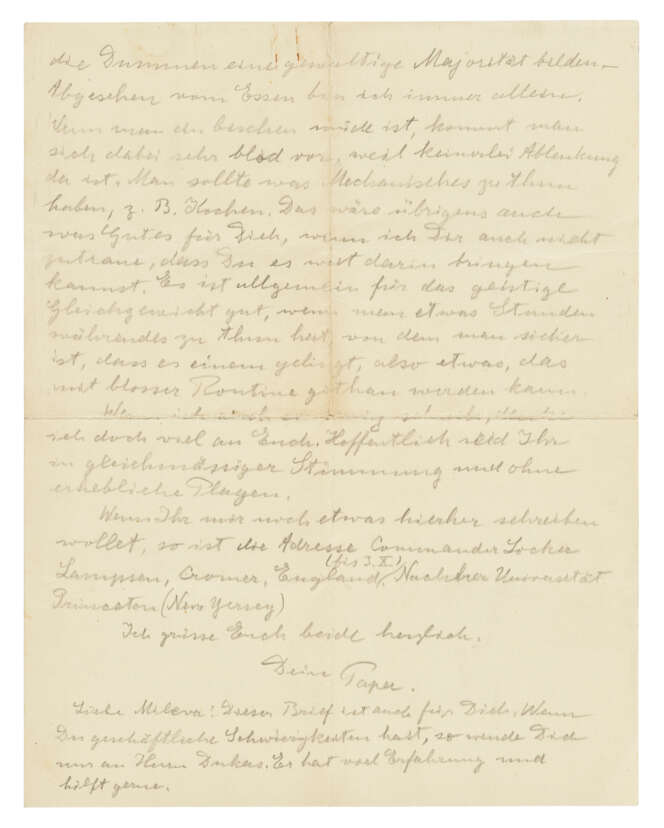 die Dummen eine gewaltige Majorität bilden.
Abgesehen vom Essen bin ich immer allein.
Wenn man ein bischen müde ist, kommt man
sich dabei sehr blöd vor, weil keinerlei Ablenkung
da ist. Man sollte was Mechanisches zu thun
haben, z. B. Kochen. Das wäre übrigens auch
was Gutes für Dich, wenn ich Dir auch nicht
zutraue, dass Du es weit darin bringen
kannst. Es ist allgemein für das geistige
Gleichgewicht gut, wenn man etwas Stunden
währendes zu thun hat, von dem man sicher
ist, dass es einem gelingt, also etwas, das
mit blosser Routine gethan werden kann.
Wenn ich auch wenig schreibe, denke
ich doch viel an Euch. Hoffentlich seid Ihr
in gleichmässiger Stimmung und ohne
erhebliche Plagen.
Wenn Ihr mir noch etwas hierher schreiben
wollet, so ist die Adresse Commander Locker
Lampsen, Cromer, England, (bis 3. X.) Nachher Universität
Princeton (New Yersey)
Ich grüsse Euch beide herzlich.
Dein Papa.
Liebe Mileva! Dieser Brief ist auch für Dich. Wenn
Du geschäftliche Schwierigkeiten hast, so wende Dich
nur an Herrn Dukas. Er hat viel Erfahrung und
hilft gerne.